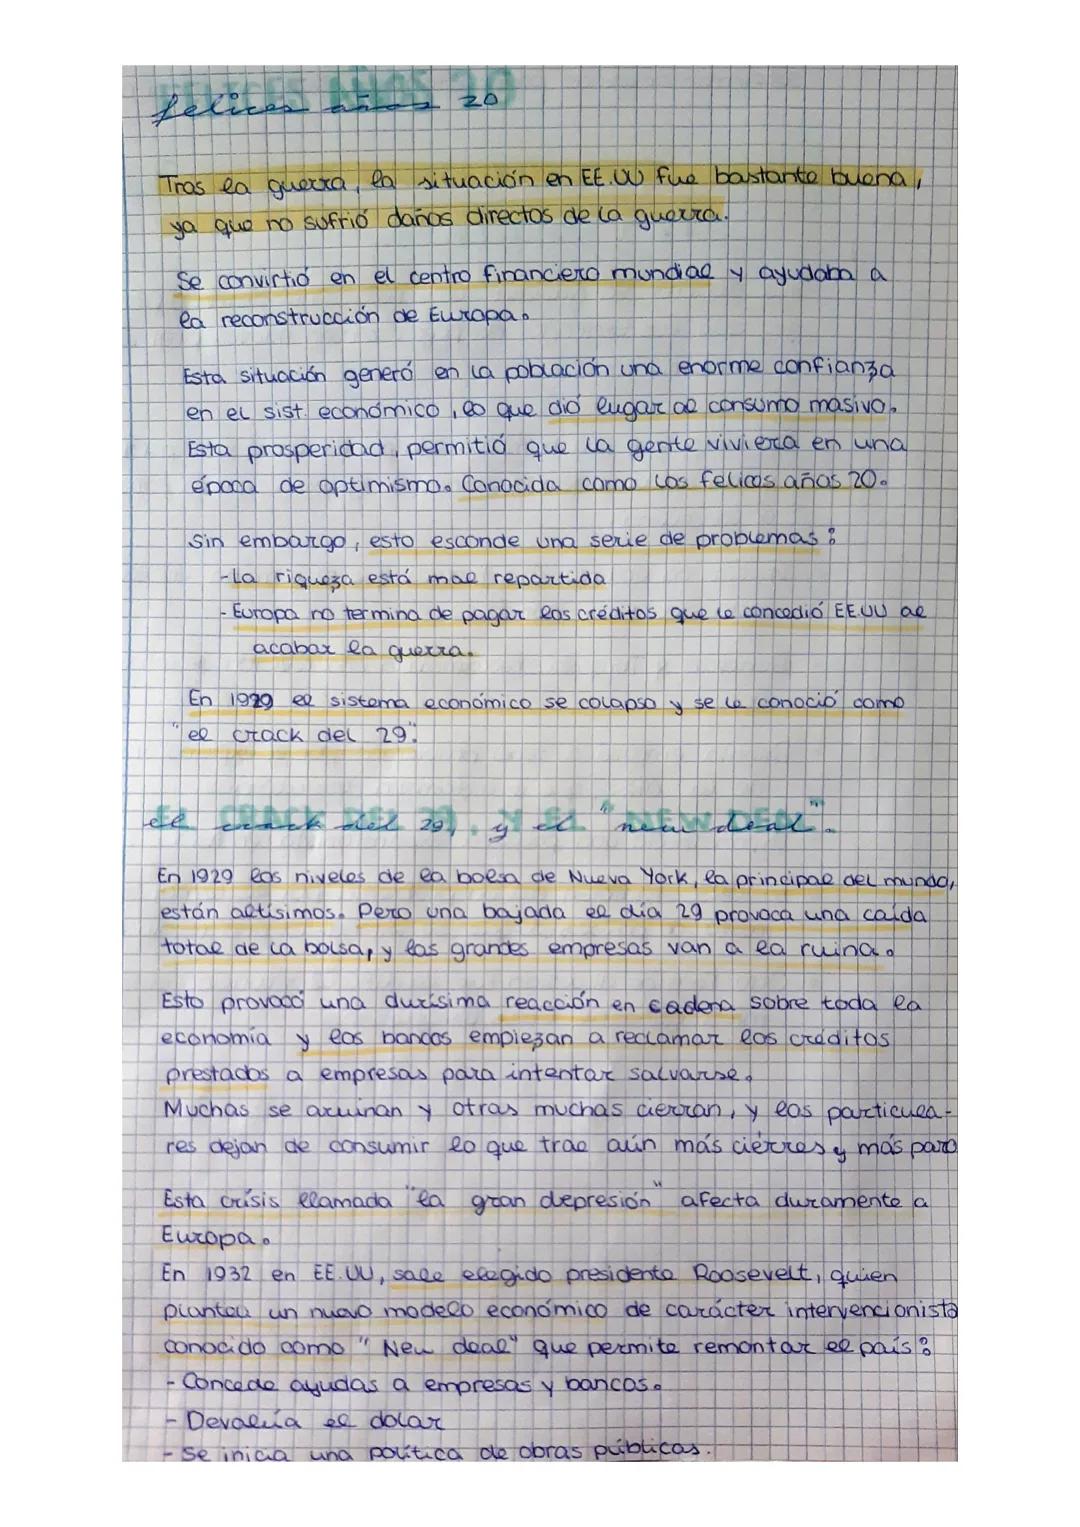 felices años 20
Tras la guerra, la situación en EE.UU fue bastante buena,
ya que no sufrió daños directos de la guerra.
Se convirtió en el centro financiero mundial y ayudaba a
la reconstrucción de Europa.
Esta situación generó en la población una enorme confianza
en el sist. económico, lo que dió lugar al consumo masivo.
Esta prosperidad, permitió que la gente viviera en una
época de optimismo. Conocida como los felices años 20.
Sin embargo, esto esconde una serie de problemas:
-La riqueza está mal repartida
-Europa no termina de pagar los créditos que le concedió EE.UU al
acabar la guerra.
En 1929 el sistema económico se colapso y se le conoció como
"el crack del 29".
El crack del 29, y el "new deal".
En 1929 los niveles de la bolsa de Nueva York, la principal del mundo,
están altísimos. Pero una bajada el día 29 provoca una caída
total de la bolsa, y las grandes empresas van a la ruina.
Esto provocó una durísima reacción en cadena sobre toda la
economía y los bancos empiezan a reclamar los créditos
prestados a empresas para intentar salvarse.
Muchas se arruinan y otras muchas cierran, y los particula-
res dejan de consumir lo que trae aún más ciérres y más paro
Esta crísis llamada "la gran depresión" afecta duramente a
Europa.
En 1932 en EE.UU, sale elegido presidente Roosevelt, quien
plantea un nuevo modelo económico de carácter intervencionista
conocido como "New deal" que permite remontar el país:
- Concede ayudas a empresas y bancos.
- Devalúa el dolar
- Se inicia una política de obras públicas.